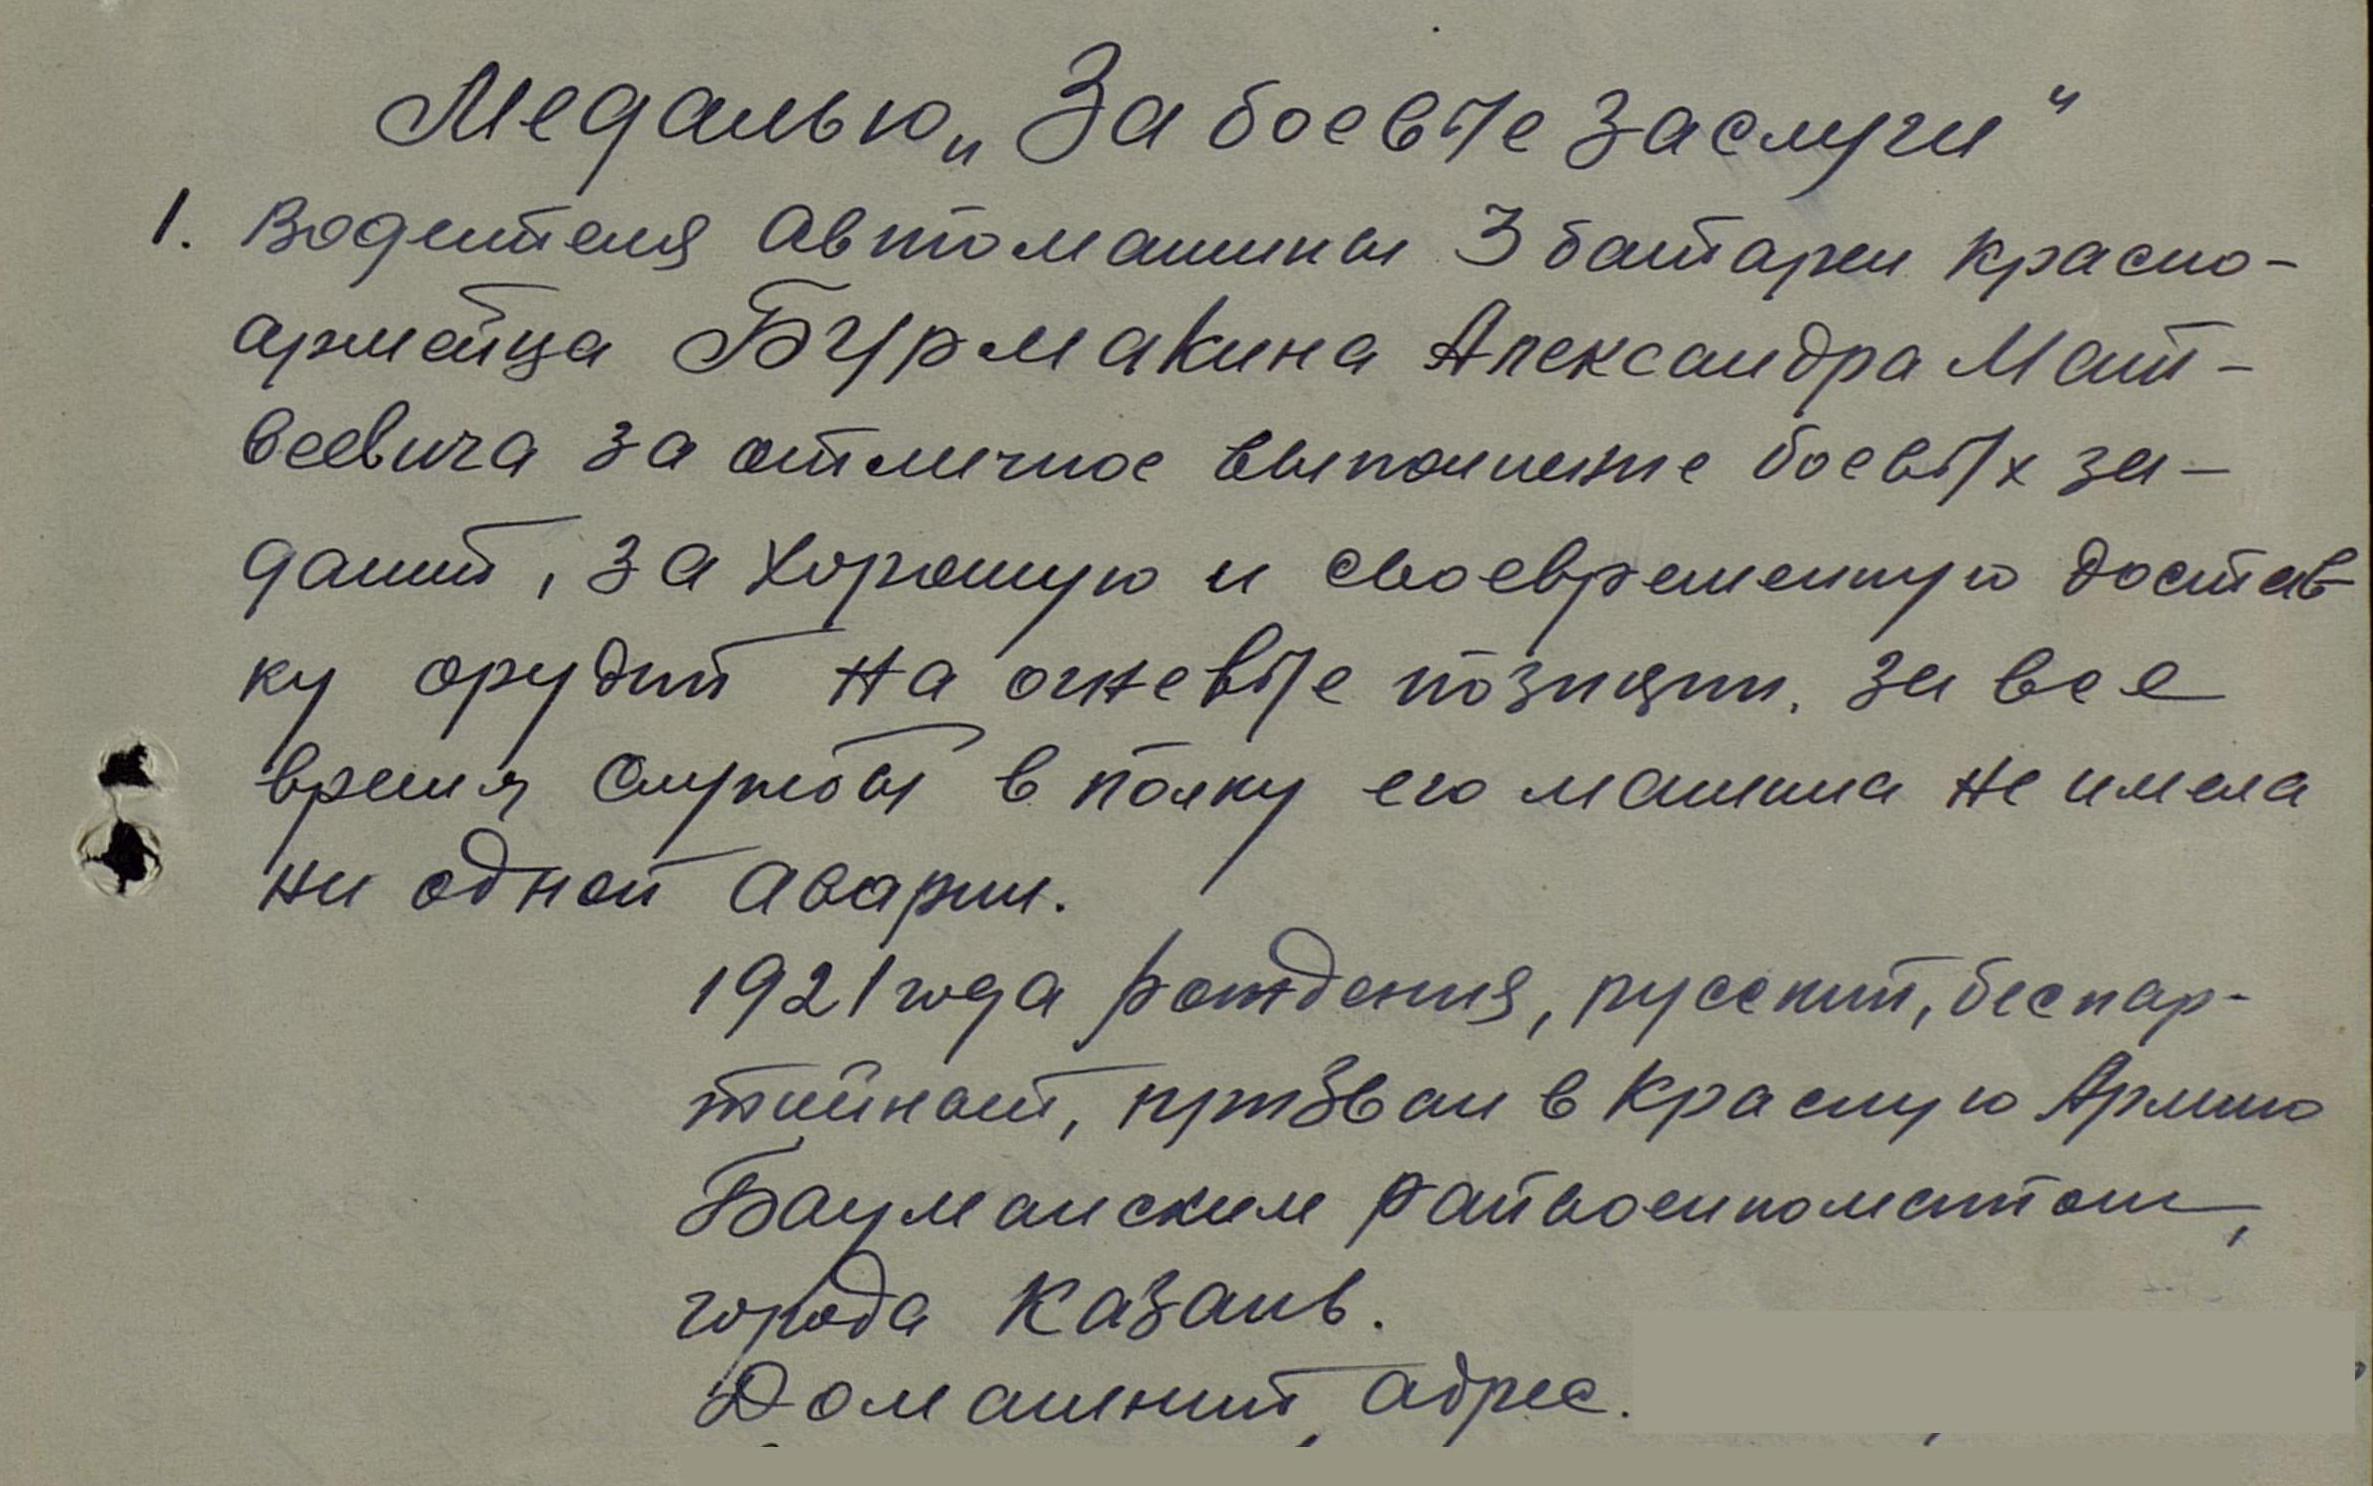 Медалью „За боевые заслуги"
1. Водителя автомашины 3 батареи красно-
армейца Бурмакина Александра Мат-
веевича за отличное выполнение боевых за-
даний, за хорошую и своевременную достав-
ку орудий на огневые позиции. За все
время службы в полку его машина не имела
ни одной аварии.
1921 года рождения, русский, беспар-
тийный, призван в Красную Армию
Бауманским райвоенкоматом,
города Казань.
Домашний адрес.